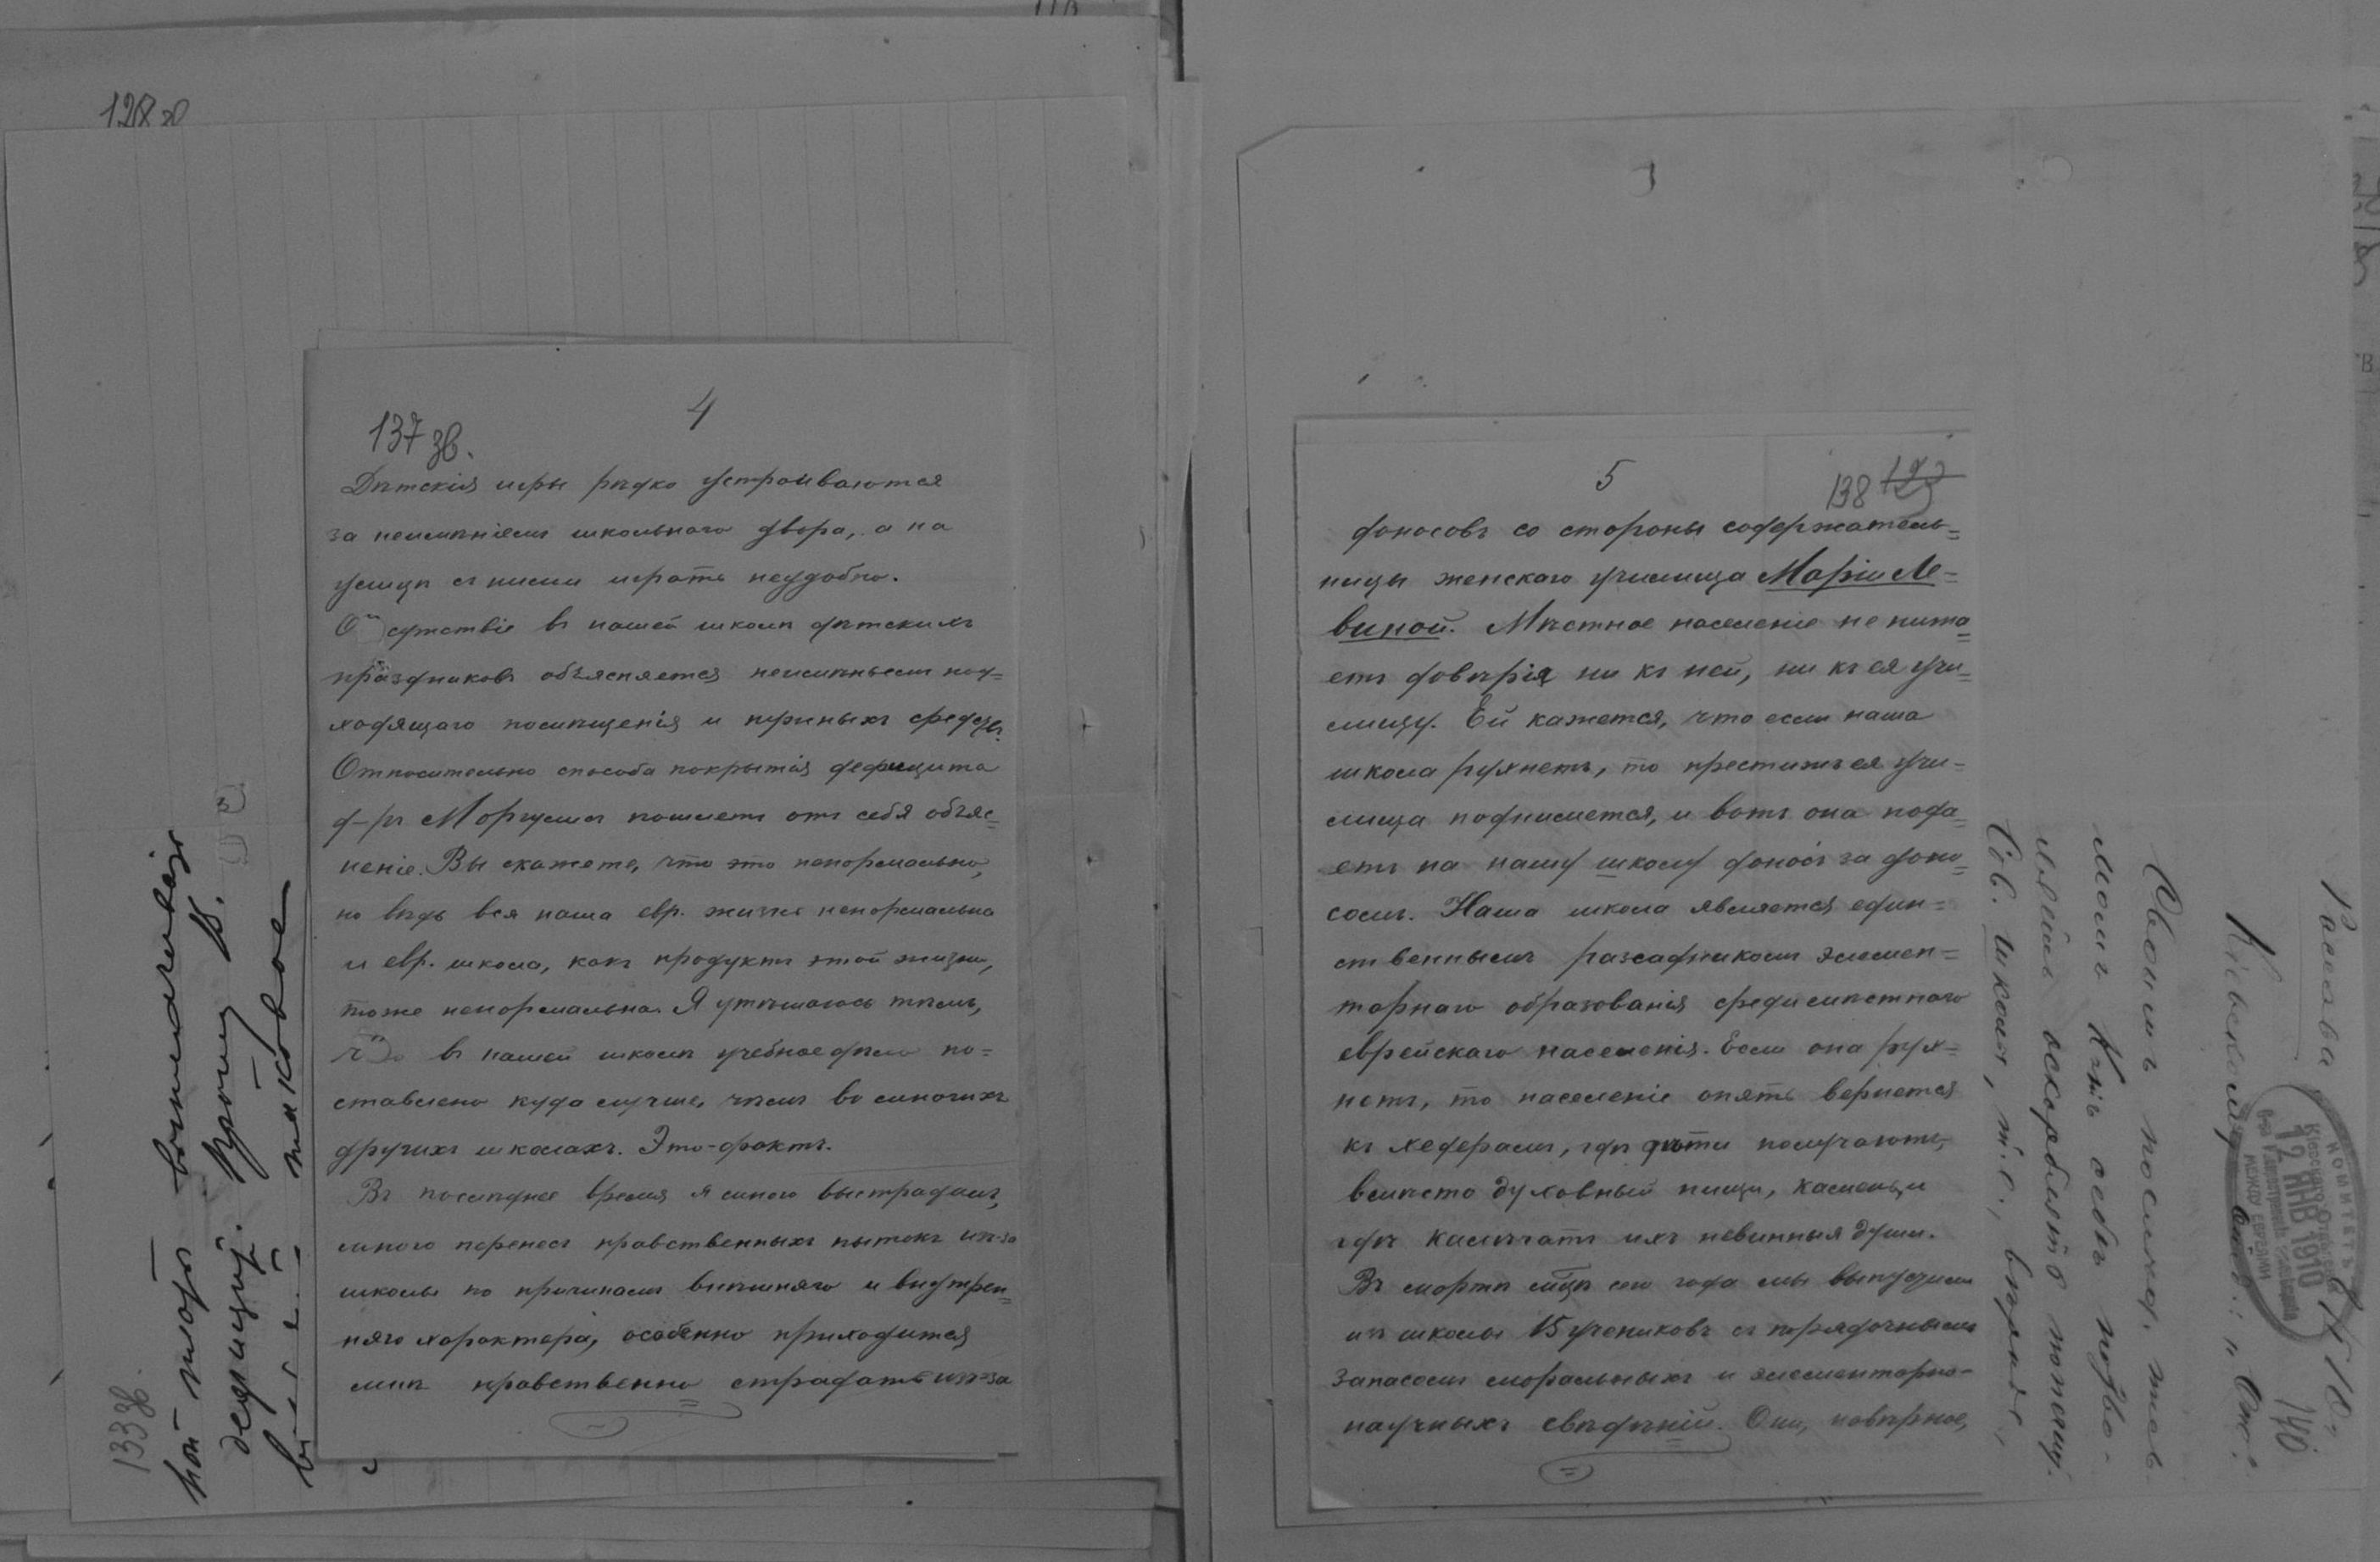 128 зв
137 зв.
4
Дѣтскія игры рѣдко устраиваются
за неимѣніемъ школьнаго двора, а на
улицѣ съ ними играть неудобно.
Отсутствіе въ нашей школѣ дѣтскихъ
праздниковъ объясняется неимѣньемъ под=
ходящаго помѣщенія и нужныхъ средствъ.
Относительно способа покрытія дефицита
д-ръ Моргулисъ пошлетъ отъ себя объяс=
неніе. Вы скажете, что это ненормально,
но вѣдь вся наша евр. жизнь ненормальна
и евр. школа, какъ продуктъ этой жизни,
тоже ненормальна. Я утѣшаюсь тѣмъ,
что въ нашей школѣ учебное дѣло по=
ставлено куда лучше, чѣмъ во многихъ
другихъ школахъ. Это-фактъ.
Въ послѣднее время я много выстрадалъ,
много перенесъ нравственныхъ пытокъ изъ-за
школы по причинамъ внѣшняго и внутрен=
няго характера, особенно приходится
мнѣ нравственно страдать изъ-за
133 зв.
5
138 129
доносовъ со стороны содержатель=
ницы женскаго училища Маріи Ле=
виной. Мѣстное населеніе не пита=
етъ довѣрія ни къ ней, ни къ ея учи=
лищу. Ей кажется, что если наша
школа рухнетъ, то престижъ ея учи=
лища поднимется, и вотъ она пода=
етъ на нашу школу доносъ за доно=
сомъ. Наша школа является един=
ственнымъ разсадникомъ элемен=
тарнаго образованія среди мѣстнаго
еврейскаго населенія. Если она рух=
нетъ, то населеніе опять вернется
къ хедерамъ, гдѣ дѣти получаютъ,
вмѣсто духовный пищи, каменьи
гдѣ калѣчатъ ихъ невинныя души.
Въ мартѣ мцѣ сего года мы выпустили
изъ школы 15 учениковъ съ порядочнымъ
запасомъ моральныхъ и элементарно-
научныхъ свѣдѣній. Они, навѣрное,
12 ЯНВ 1910
140